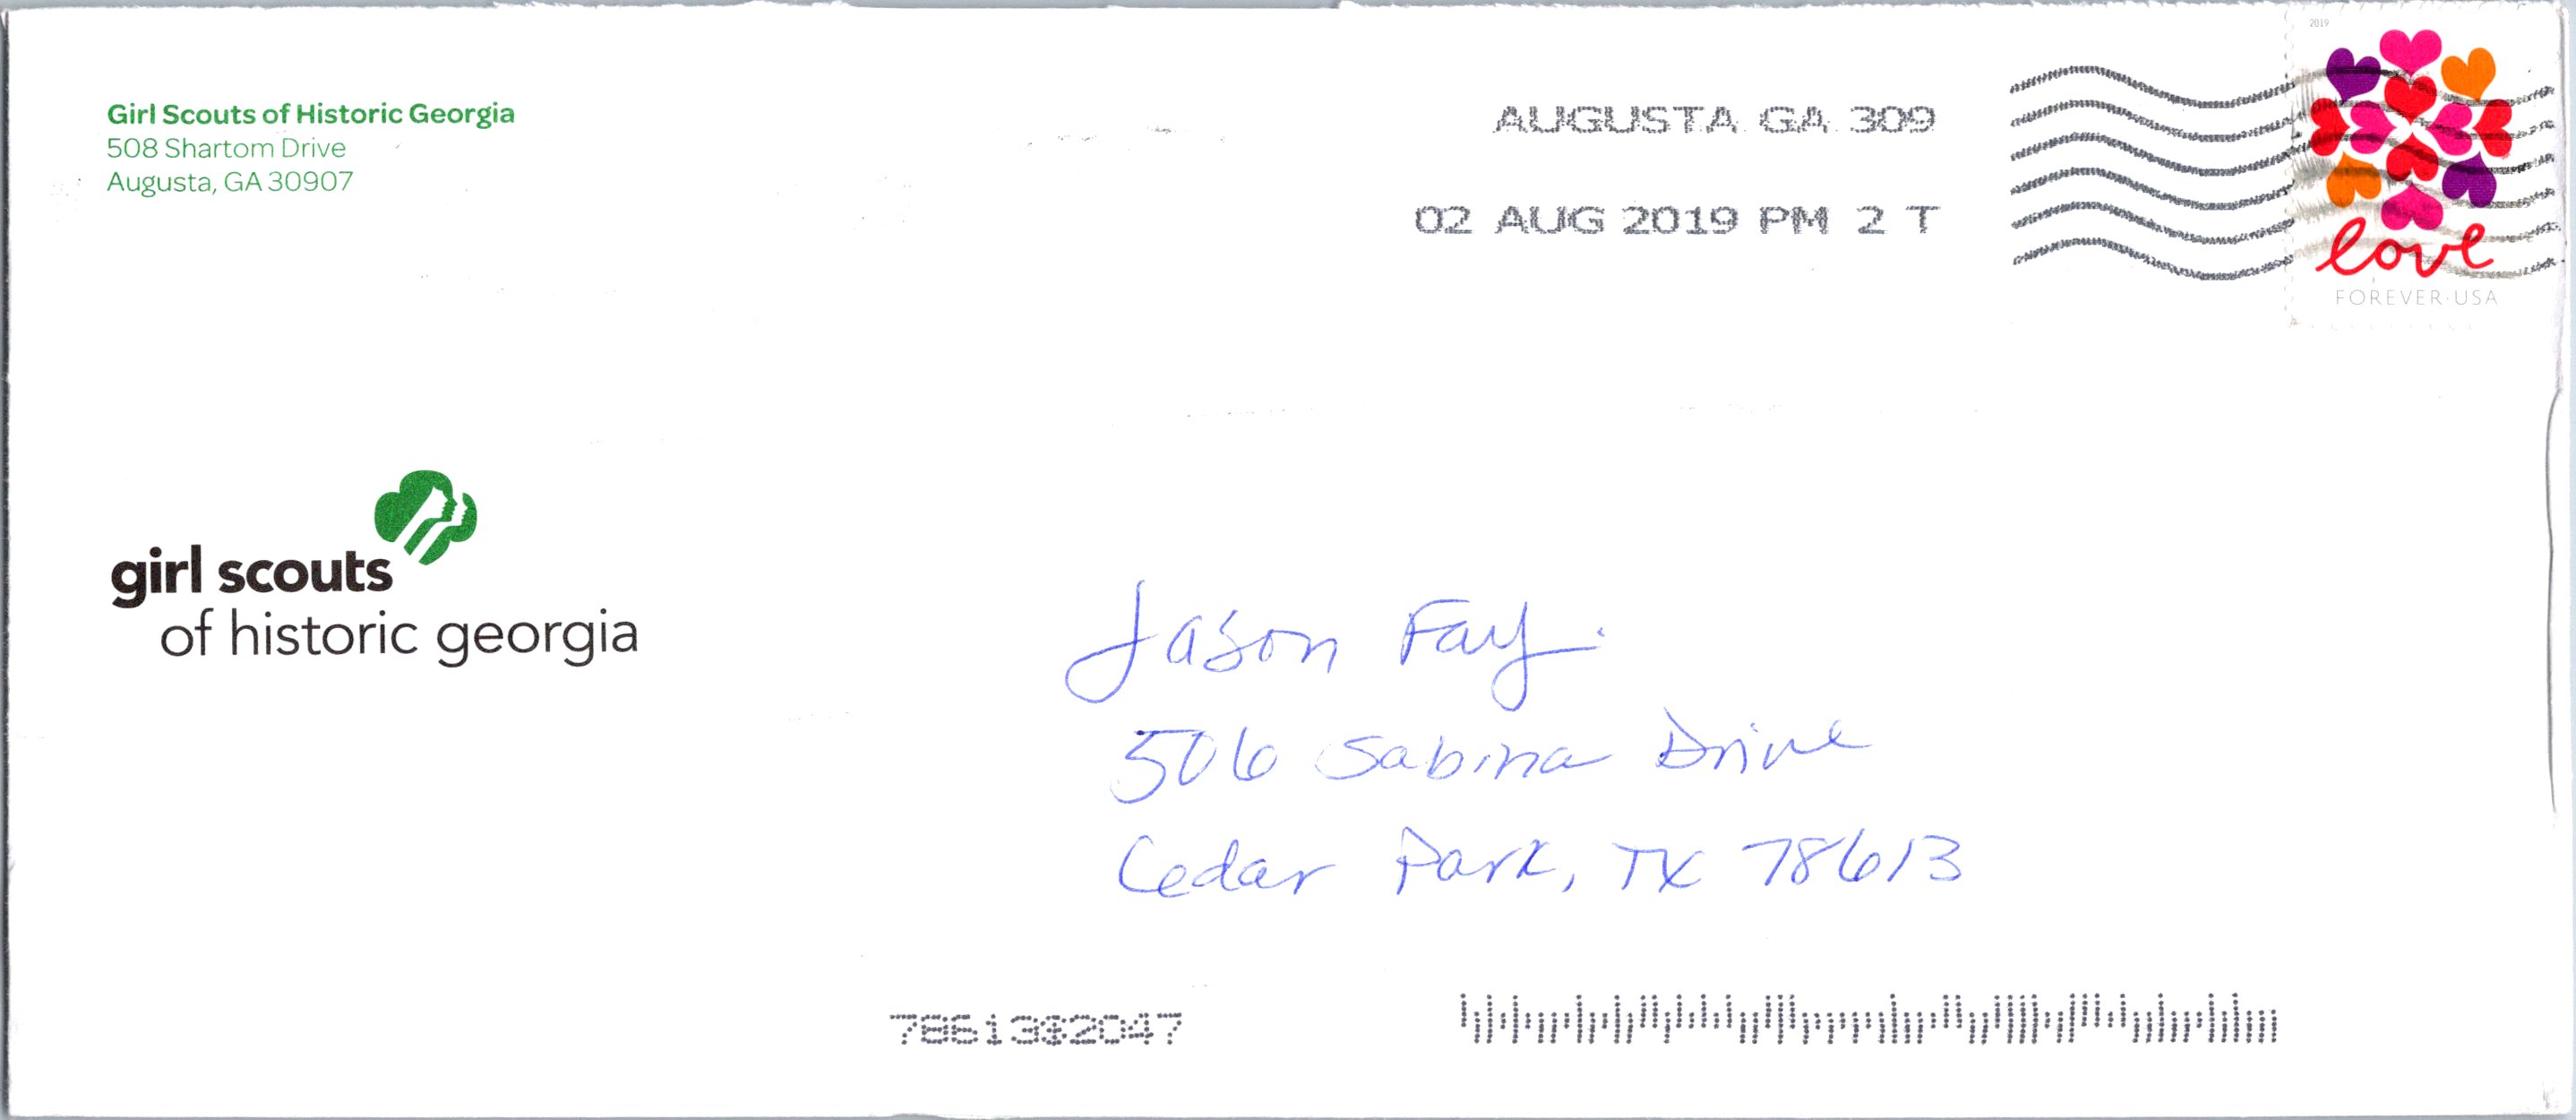 Girl Scouts of Historic Georgia
508 Shartom Drive
Augusta, GA 30907
AUGUSTA GA 309
02 AUG 2019 PM 2 T
2019
love
FOREVER·USA
girl scouts
of historic georgia
Jason Fay
506 Sabina Drive
Cedar Park, TX 78613
78613@2047